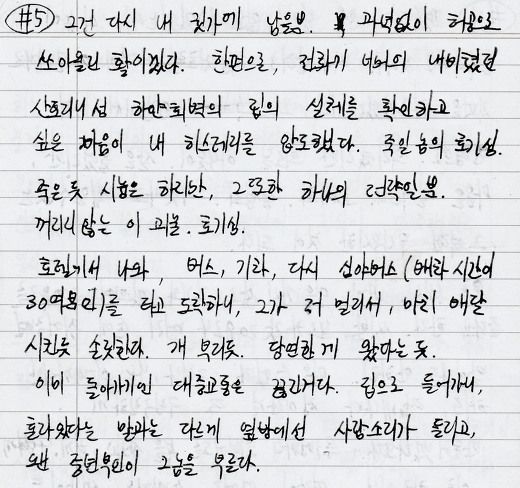 #5) 그건 다시 내 귓가에 남을뿐. 과녁없이 허공으로
쏘아올린 활이겠다. 한편으로, 전화기 너머의 내비쳤던
산토리니섬 하얀회벽의 집의 실체를 확인하고
싶은 마음이 내 히스테리를 압도했다. 죽일놈의 호기심.
죽은 듯 시늉은 하지만, 그또한 하나의 전략일뿐.
꺼리지 않는 이 괴물. 호기심.
호텔에서 나와, 버스, 기차, 다시 심야버스 (배차시간이
30여분인)를 타고 도착하니, 그가 저 멀리서, 마치 배달
시킨듯 손짓한다. 개 부리듯. 당연한게 왔다는 듯.
이미 돌아가기엔 대중교통은 끊긴거다. 집으로 들어가니,
혼자왔다는 말과는 다르게 옆방에선 사람소리가 들리고,
왠 중년부인이 그놈을 부른다.